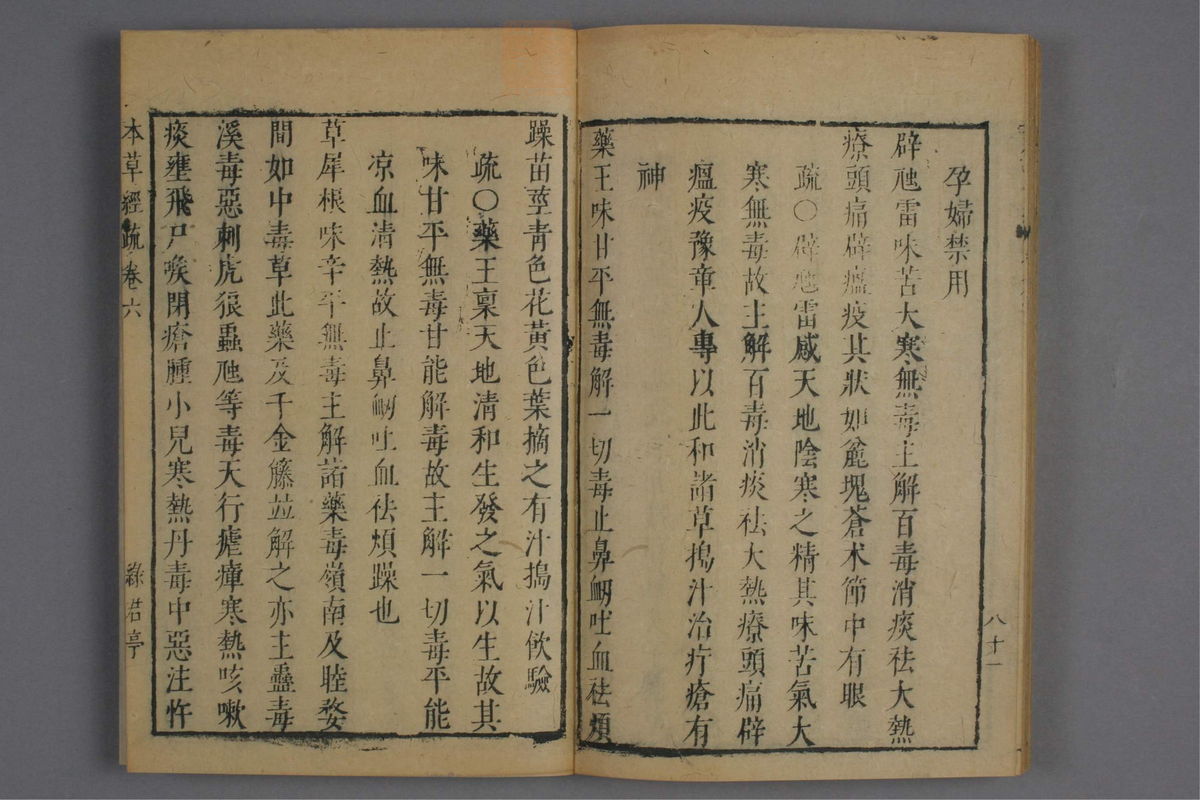 孕婦禁用
辟虺雷味苦大寒無毒主解百毒消痰祛大熱
療頭痛辟瘟疫其狀如麄塊蒼术節中有眼
疏○辟虺雷感天地陰寒之精其味苦氣大
寒無毒故主解百毒消痰祛大熱療頭痛辟
瘟疫豫章人專以此和諸草搗汁治疔瘡有
神
藥王味甘平無毒解一切毒止鼻衂吐血祛煩
八十一
躁苗莖青色花黃色葉摘之有汁搗汁飲驗
疏○藥王稟天地清和生發之氣以生故其
味甘平無毒甘能解毒故主解一切毒平能
凉血清熱故止鼻衂吐血祛煩躁也
草犀根味辛平無毒主解諸藥毒嶺南及睦婺
間如中毒草此藥及千金藤並解之亦主蠱毒
溪毒惡刺虎狼蟲虺等毒天行瘧瘴寒熱咳嗽
痰壅飛尸喉閉瘡腫小兒寒熱丹毒中惡注忤
本草經疏卷六
綠君亭